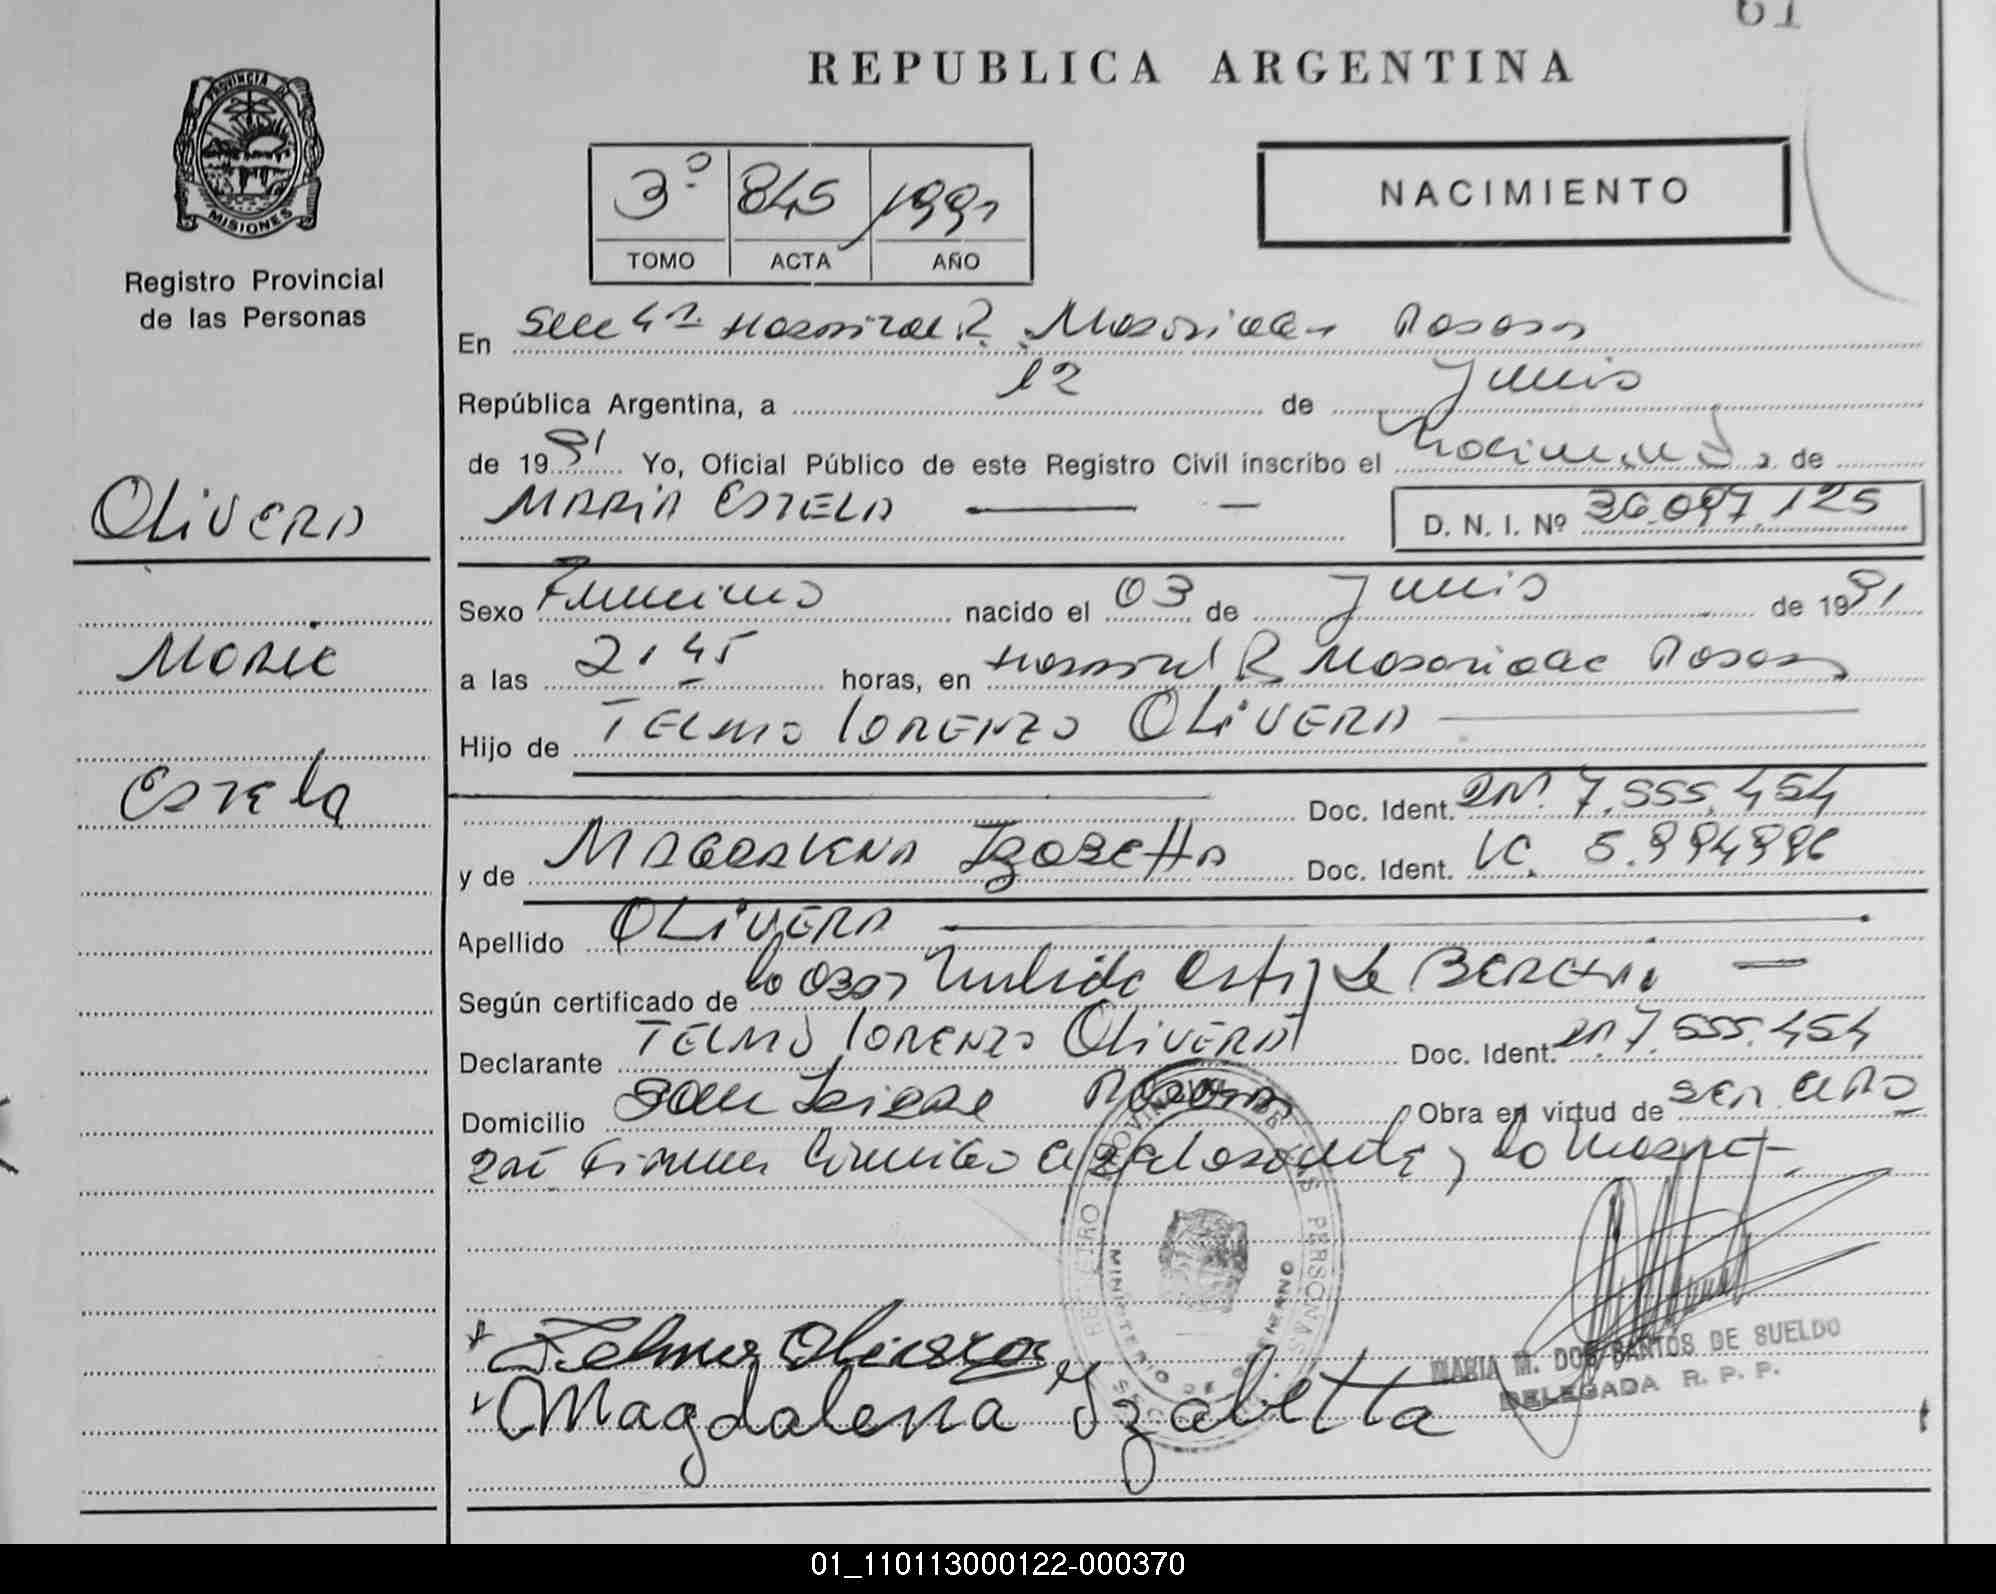 61
REPUBLICA ARGENTINA
PROVINCIA DE
MISIONES
Registro Provincial
de las Personas
3º 845 1991
TOMO ACTA AÑO
NACIMIENTO
En Secc 4ª Hospital R. Posadas
República Argentina, a 12 de Junio
de 1991 Yo, Oficial Público de este Registro Civil inscribo el Nacimiento de
MARIA ESTELA
D. N. I. Nº 36.097.125
OLIVERA
Sexo Femenino nacido el 03 de Junio de 1991
Maria
a las 2,45 horas, en Hospital R Posadas
Hijo de TELMO LORENZO OLIVERA
Estela
Doc. Ident. DNI. 7.555.454
y de MAGDALENA IZABETTA Doc. Ident. LC. 5.994996
Apellido OLIVERA
Según certificado de
Declarante TELMO LORENZO OLIVERA Doc. Ident. 7.555.454
Domicilio Posadas Obra en virtud de ser
y la
REGISTRO PROVINCIAL DE LAS PERSONAS
MINISTERIO DE GOBIERNO
Telmo Olivera
MARIA M. DOS SANTOS DE SUELDO
DELEGADA R. P. P.
Magdalena Yzabetta
01_110113000122-000370